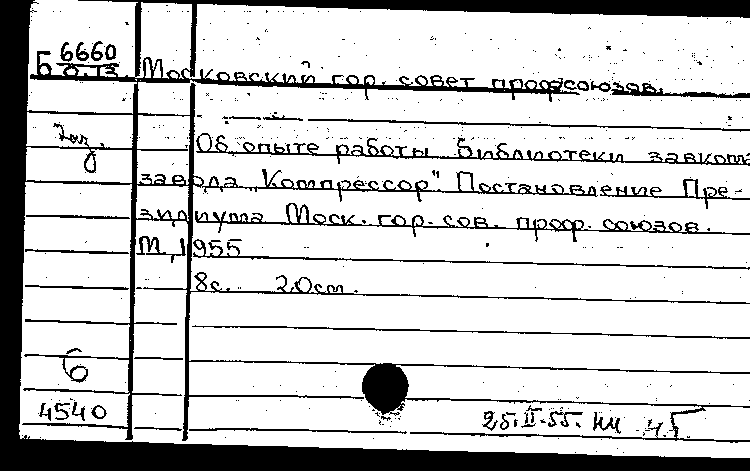 Б 6660
Московский гор. совет профсоюзов.
Об опыте работы библиотеки завкома
завода „Компрессор". Постановление Пре-
зидиума Моск. гор. сов. проф. союзов.
М, 1955
8с. 20см.
6
4540
25.II.55. НЧ